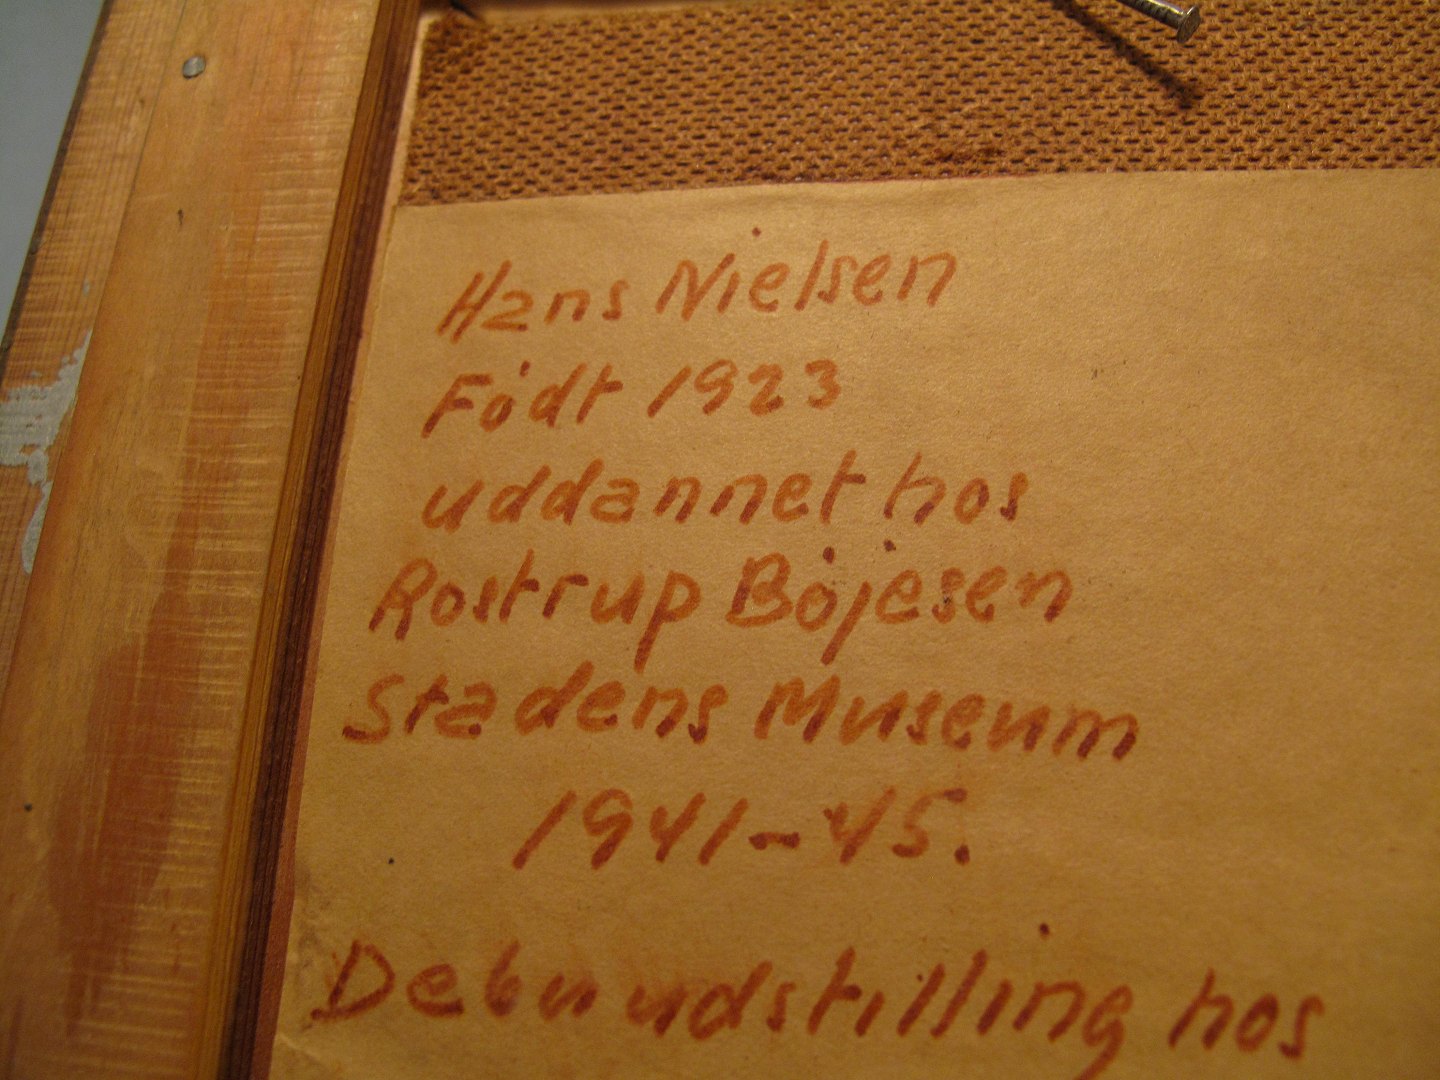 Hans Nielsen
Født 1923
uddannet hos
Rostrup Bøjesen
Stadens Museum
1941-45.
Debuudstilling hos